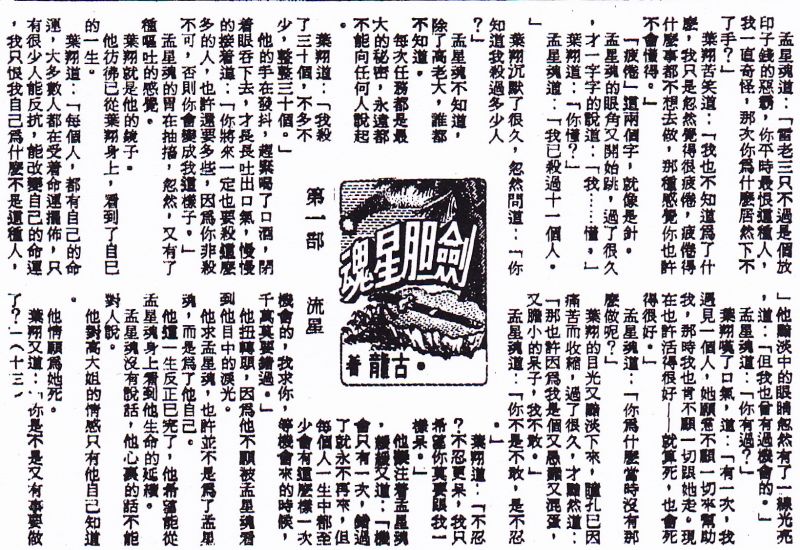 孟星魂道：「雷老三只不過是個放
印子錢的惡霸，你平時最恨這種人，
我一直奇怪，那次你爲什麼居然下不
了手？」
葉翔苦笑道：「我也不知道爲了什
麼，我只是忽然覺得很疲倦，疲倦得
什麼事都不想去做，那種感覺你也許
不會懂得。」
「疲倦」這兩個字，就像是針。
孟星魂的眼角又開始跳，過了很久
，才一字字的說道：「我……懂。」
「你懂？」
孟星魂道：「我已殺過十一個人。
」
葉翔沉默了很久，忽然問道：「你
知道我殺過多少人
？」
孟星魂不知道，
除了高老大，誰都
不知道。
每次任務都是最
大的秘密，永遠都
不能向任何人說起
。
葉翔道：「我殺
了三十個，不多不
少，整整三十個。」
他的手在發抖，趕緊喝了口酒，閉
着眼吞下去，才長長吐出口氣，慢慢
的接着道：「你將來一定也要殺這麼
多的人，也許還要多些，因爲你非殺
不可，否則你會變成我這樣子。」
孟星魂的胃在抽搐，忽然，又有了
種嘔吐的感覺。
葉翔就是他的鏡子。
他彷彿已從葉翔身上，看到了自己
的一生。
葉翔道：「每個人，都有自己的命
運，大多數人都在受着命運擺佈，只
有很少人能反抗，能改變自己的命運
，我只恨我自己爲什麼不是這種人，
劍胆星魂
古龍·著
第一部 流星
」他黯淡中的眼睛忽然有了一線光亮
道：「但我也曾有過機會的。」
孟星魂道：「你有過？」
葉翔嘆了口氣，道：「有一次，我
遇見一個人，她願意不顧一切來幫助
我，那時我也肯不顧一切跟她走。現
在也許活得很好——就算死，也會死
得很好。」
孟星魂道：「你爲什麼當時沒有那
麼做呢？」
葉翔的目光又黯淡下來，瞳孔已因
痛苦而收縮，過了很久，才黯然道：
「那也許因爲我是個又愚蠢又混蛋，
又膽小的呆子，我不敢。」
孟星魂道：「你不是不敢，是不忍
。」
葉翔道：「不忍
？不忍更呆，我只
希望你莫要跟我一
樣呆。」
他凝注着孟星魂
，緩緩又道：「機
會只有一次，錯過
了就永不再來，但
每個人一生中都至
少會有這麼樣一次
機會的，我求你，等機會來的時候，
千萬莫要錯過。」
他扭轉頭，因爲他不願被孟星魂看
到他目中的淚光。
他求孟星魂，也許並不是爲了孟星
魂，而是爲了他自己。
他這一生反正已完了，他希望能從
孟星魂身上看到他生命的延續。
孟星魂沒有說話，他心裏的話不能
對人說。
他對高大姐的情感只有他自己知道
。
他情願爲她死。
葉翔又道：「你是不是又有事要做
了？」（十三）